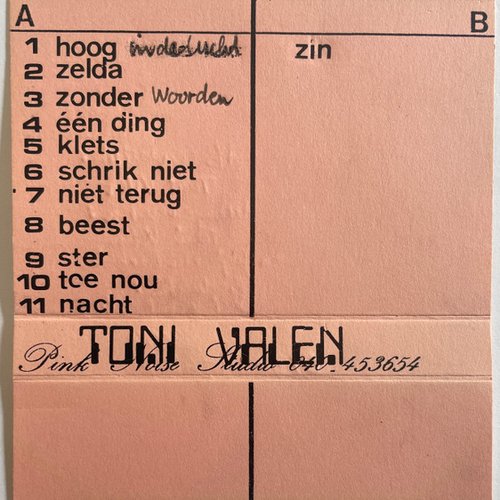 A
B
1 hoog in de lucht
zin
2 zelda
3 zonder Woorden
4 één ding
5 klets
6 schrik niet
7 niet terug
8 beest
9 ster
10 toe nou
11 nacht
TONI VALEN
Pink Noise Studio 040-453654